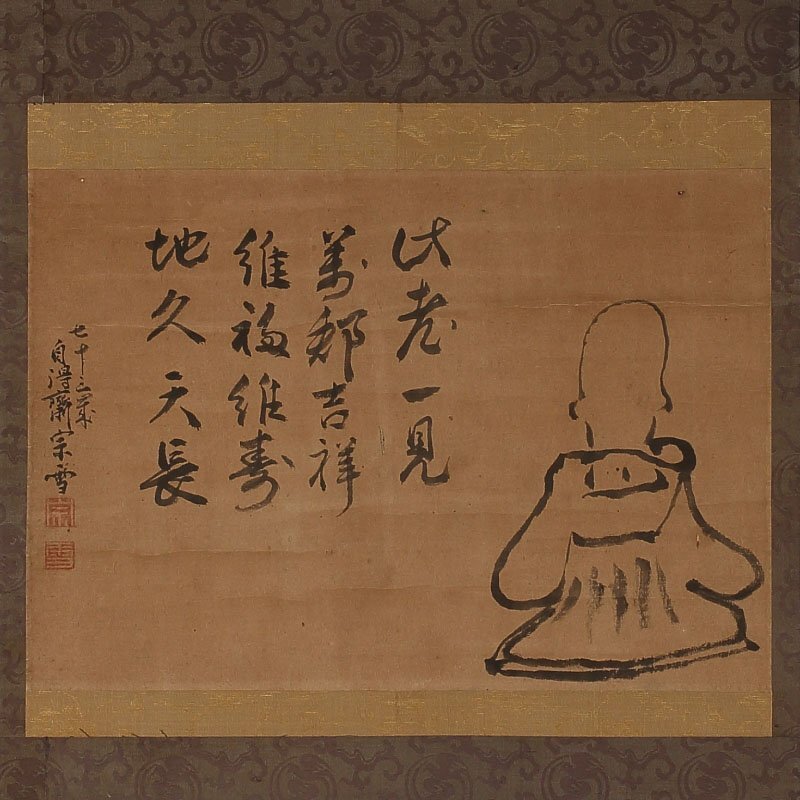 此老一見
萬鄰吉祥
維福維壽
地久天長
七十三歳
自得齋宗雪